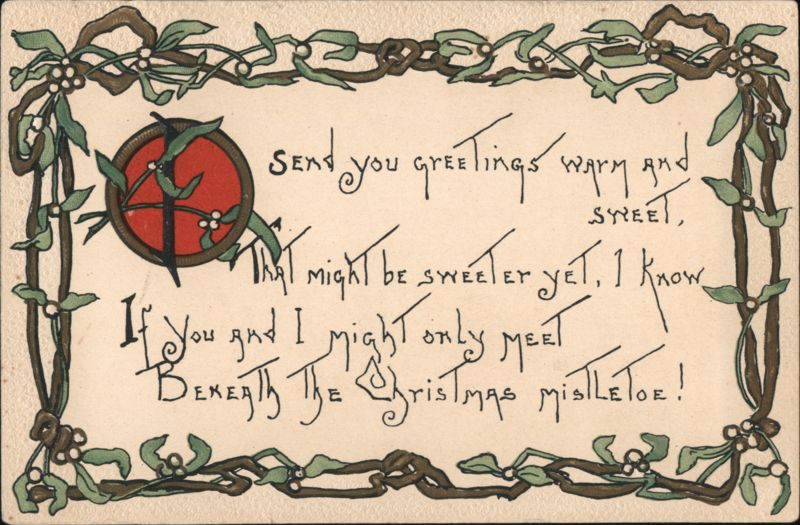 I send you greetings warm and
sweet,
That might be sweeter yet, I know
If you and I might only meet
Beneath the Christmas mistletoe!